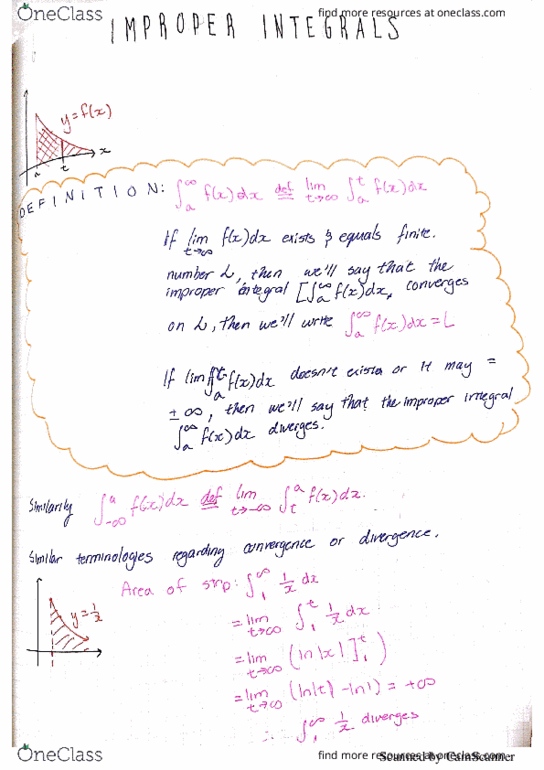 OneClass
find more resources at oneclass.com
IMPROPER INTEGRALS
y=f(x)
x
a
t
DEFINITION: ∫_a^∞ f(x)dx def= lim_{t→∞} ∫_a^t f(x)dx
If lim_{t→∞} f(x)dx exists & equals finite.
number L, then we'll say that the
improper integral [∫_a^∞ f(x)dx, converges
on L, then we'll write ∫_a^∞ f(x)dx = L
If lim ∫_a^t f(x)dx doesn't exists or it may =
± ∞, then we'll say that the improper integral
∫_a^∞ f(x)dx diverges.
Similarily ∫_{-∞}^a f(x)dx def= lim_{t→-∞} ∫_t^a f(x)dx.
Similar terminologies regarding convergence or divergence.
y=1/x
Area of strip: ∫_1^∞ 1/x dx
= lim_{t→∞} ∫_1^t 1/x dx
= lim_{t→∞} (ln|x|]_1^t)
= lim_{t→∞} (ln|t| - ln1) = +∞
∴ ∫_1^∞ 1/x diverges
OneClass
find more resources at oneclass.com
Scanned by CamScanner